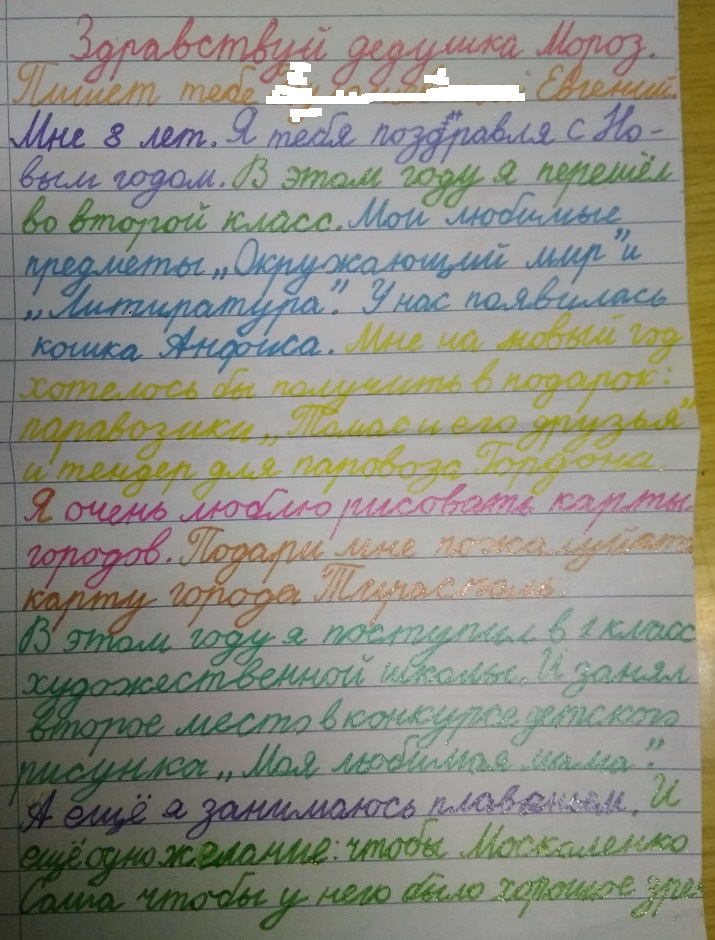 Здравствуй дедушка Мороз.
Пишет тебе Евгений.
Мне 8 лет. Я тебя поздравля с Но-
вым годом. В этом году я перешёл
во второй класс. Мои любимые
предметы „Окружающий мир" и
„Литиратура". У нас появилась
кошка Анфиса. Мне на новый год
хотелось бы получить в подарок:
паравозики „Томас и его друзья"
и тендер для паровоза Гордона.
Я очень люблю рисовать карты
городов. Подари мне пожалуйста
карту города
В этом году я поступил в 1 класс
художественной школы. И занял
второе место в конкурсе детского
рисунка „Моя любимая мама".
А ещё я занимаюсь плаваньем. И
ещё одно желание: чтобы Москаленко
Саша чтобы у него было хорошое зре